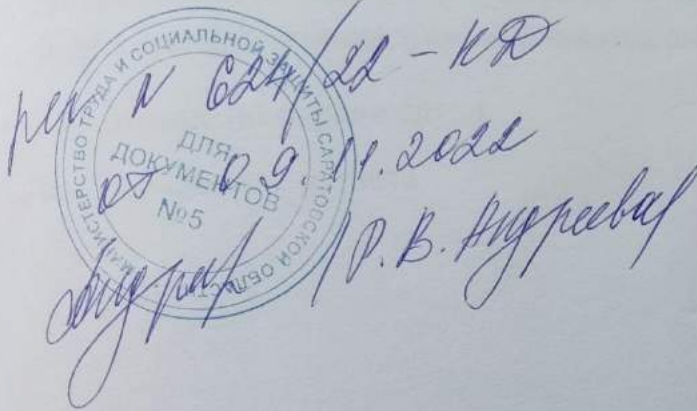 рег N 624/22-КД
от 09.11.2022
/Р.В. Андреева/
МИНИСТЕРСТВО ТРУДА И СОЦИАЛЬНОЙ ЗАЩИТЫ САРАТОВСКОЙ ОБЛАСТИ
ДЛЯ
ДОКУМЕНТОВ
№5